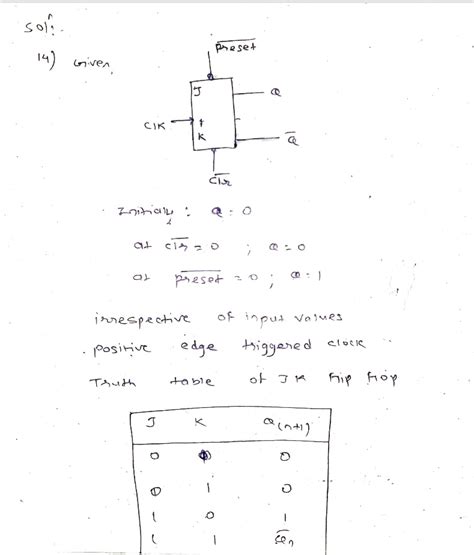 Solⁿ:-
14) Given,
P̅r̅e̅s̅e̅t̅
J
Q
CLK
K
Q̅
C̅l̅r̅
Initially : Q = 0
at C̅l̅r̅ = 0 ; Q = 0
at p̅r̅e̅s̅e̅t̅ = 0 ; Q = 1
irrespective of input values
. positive edge triggered clock
Truth table of JK flip flop
J K Q(n+1)
0 0 0
0 1 0
1 0 1
1 1 Q̅n